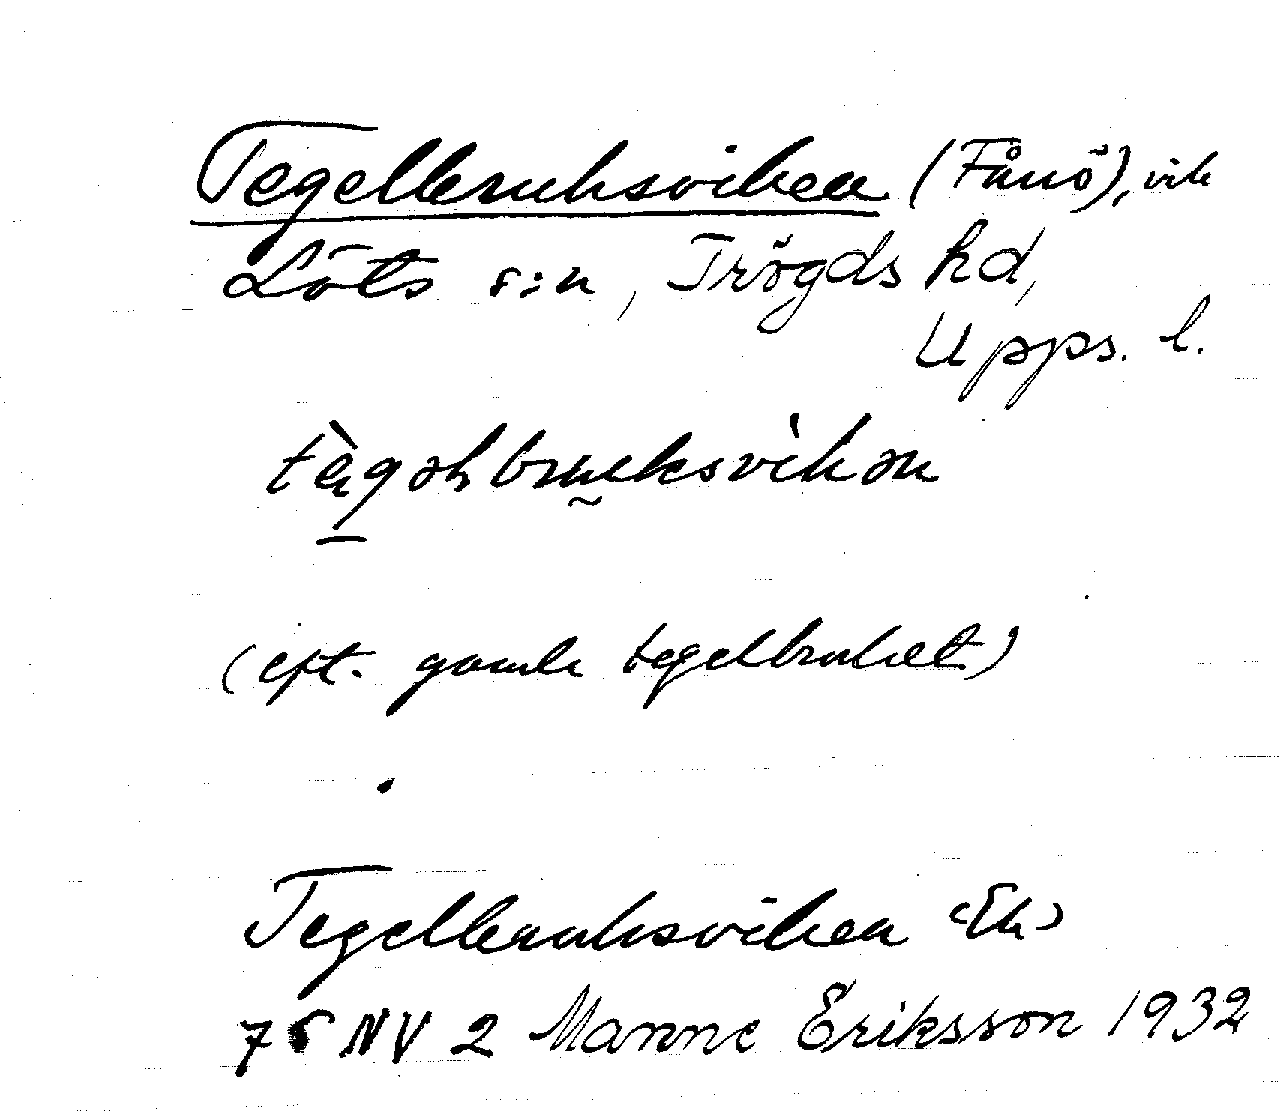 Tegelbruksviken (Fånö), vik
Löts s:n, Trögds hd,
Upps. l.
tègəlbruksvikən
(eft. gamla tegelbruket)
Tegelbruksviken (Ek)
75 NV 2 Manne Eriksson 1932